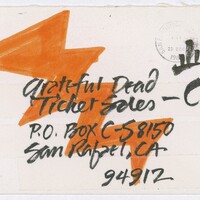 Grateful Dead
Ticket Sales – C
P.O. Box C-S 8150
San Rafael, CA
94912